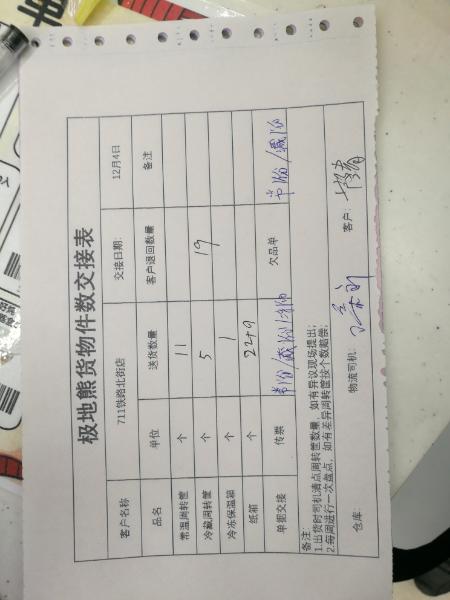 极地熊货物件数交接表
客户名称 711铁路北街店 交接日期: 12月4日
品名 单位 送货数量 客户退回数量 备注
常温周转筐 个 11
冷藏周转筐 个 5 19
冷冻保温箱 个 1
纸箱 个 22+9
单据交接 传票 欠品单
备注:
1.出货时司机清点周转筐数量,如有异议现场提出;
2.每周进行一次盘点,如有差异周转筐按个数赔偿;
仓库: 物流司机: 客户: